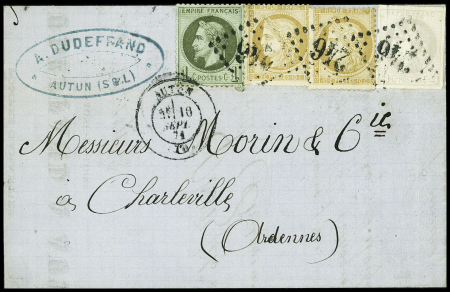 A. DUDEFFAND
AUTUN (S&L)
EMPIRE FRANÇAIS
POSTES
AUTUN
10
SEPT.
71
Messieurs Morin & Cie
à Charleville
(Ardennes)